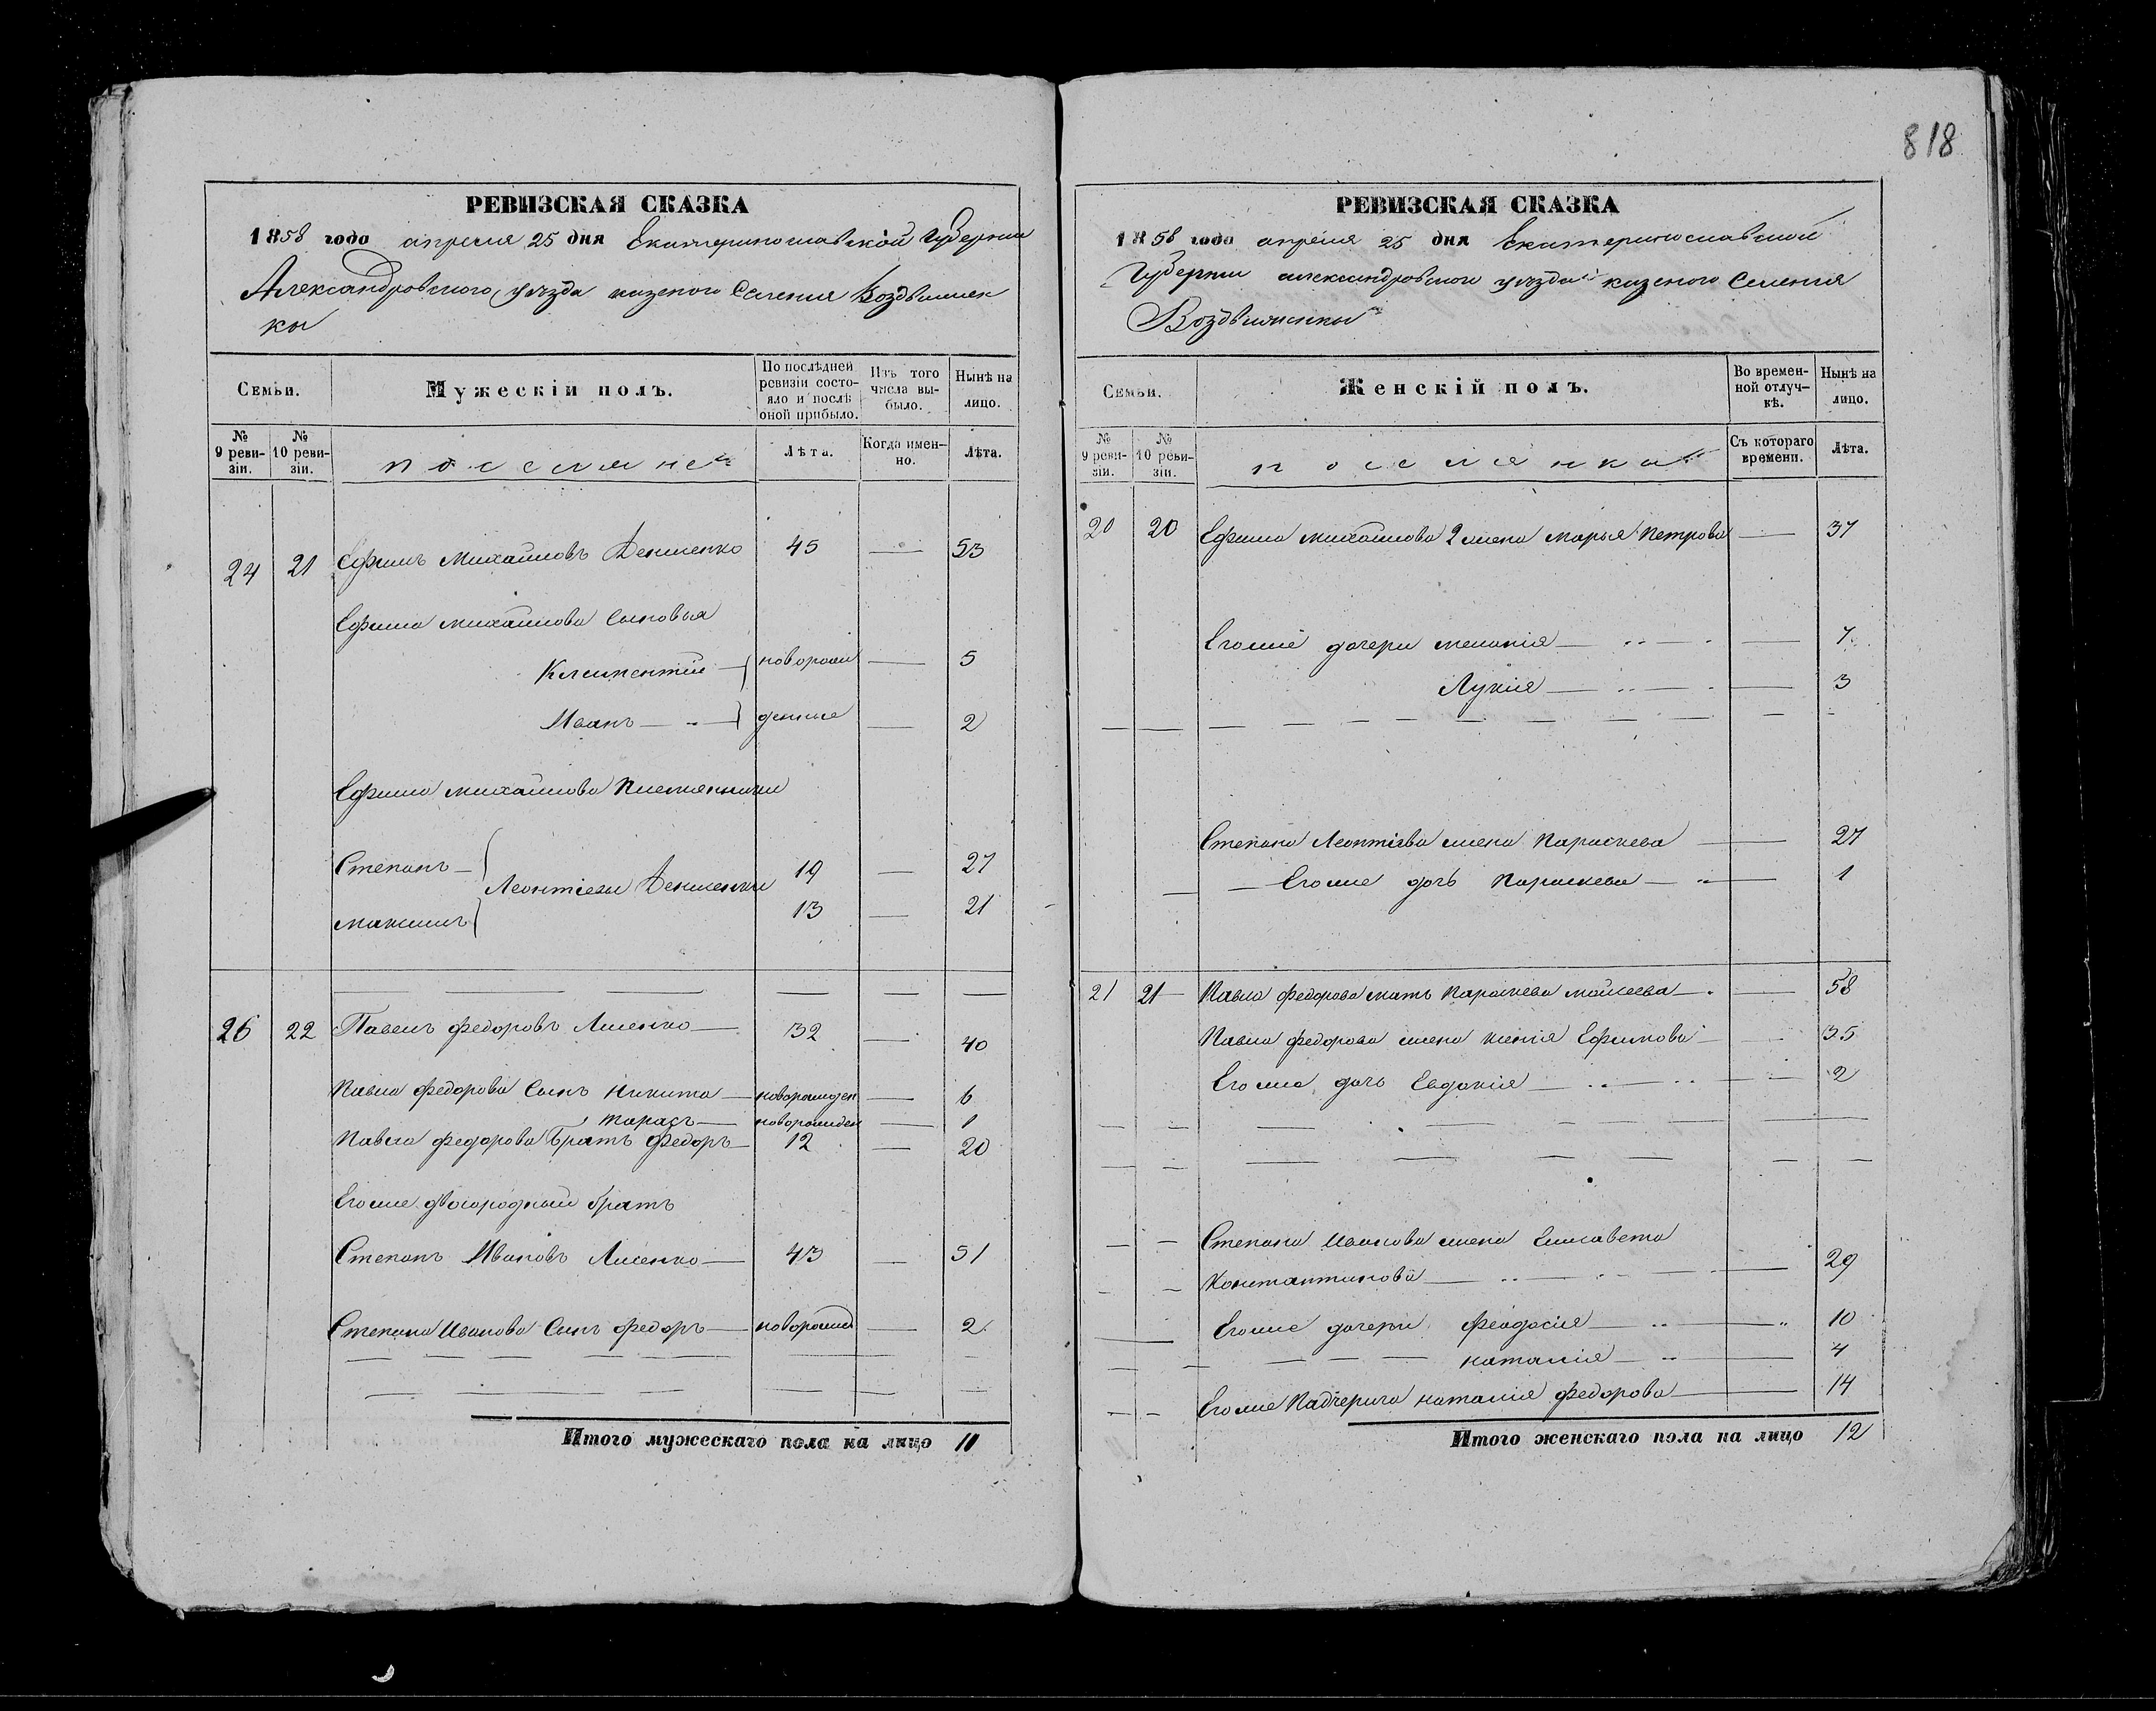 818
РЕВИЗСКАЯ СКАЗКА
1858 года апреля 25 дня Екатеринославской Губернии
Александровского уезда казеного Селения Воздвижен
ки
Семьи.
Мужескій полъ.
По послѣдней ревизіи состо-
яло и послѣ оной прибыло.
Изъ того числа вы-
было.
Нынѣ на лицо.
№ 9 реви-
зіи.
№ 10 реви-
зіи.
поселяне
Лѣта.
Когда имен-
но.
Лѣта.
24 21 Ефимъ Михайловъ 45 — 53
Ефима Михайлова Сыновья
Климентий — новорож — 5
Иванъ — денные — 2
Ефима Михайлова Племянники
Степанъ — 19 — 27
Леонтіевы
Максимъ 13 — 21
26 22 Павелъ Федоровъ Лисенко — 32 — 40
Павла Федорова Сынъ Никита — новорожден — 6
Тарасъ — новорожден — 1
Павла Федорова Братъ Федоръ — 12 — 20
Егоже двоюродный братъ
Степанъ Ивановъ Лисенко — 43 — 51
Степана Иванова Сынъ Федоръ — новорожд — 2
Итого мужескаго пола на лицо 11
РЕВИЗСКАЯ СКАЗКА
1858 года апреля 25 дня Екатеринославской
Губернии александровского уезда казеного Селения
Воздвиженки
Семьи.
Женскій полъ.
Во времен-
ной отлуч-
кѣ.
Нынѣ на лицо.
№ 9 реви-
зіи.
№ 10 реви-
зіи.
поселянки
Съ котораго времени.
Лѣта.
20 20 Ефима Михайлова 2 жена Марья Петрова — 37
Егоже дочери Меланія — 7
Лукия — 3
Степана Леонтіева жена Параскева — 27
Егоже дочь Параскева — 1
21 21 Павла Федорова мать Параскева Моисеева — 58
Павла Федорова жена Ксенія Ефимова — 35
Егоже дочь Евдокія — 2
Степана Иванова жена Елисавета
Константинова — 29
Егоже дочери Феодосія — 10
Наталия — 4
Егоже Падчерица Наталия Федорова — 14
Итого женскаго пола на лицо 12